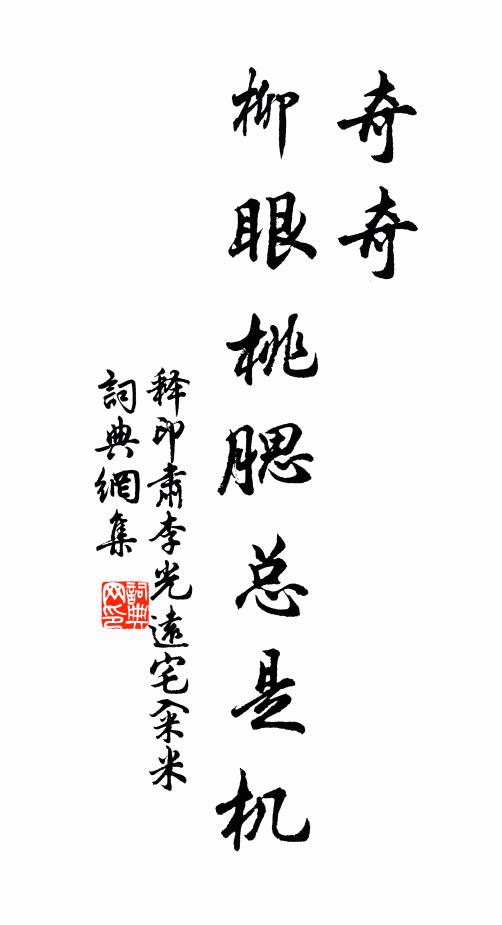 奇奇
柳眼桃腮总是机
释印肃李光遠宅籴米
詞典網集
詞典网印